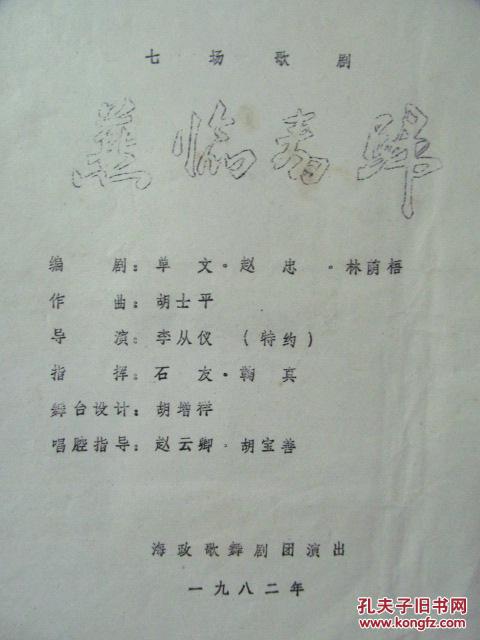 七场歌剧
燕临春
编剧：单文·赵忠·林荫梧
作曲：胡士平
导演：李从仪（特约）
指挥：石友·鞠真
舞台设计：胡增祥
唱腔指导：赵云卿·胡宝善
海政歌舞剧团演出
一九八二年
孔夫子旧书网
www.kongfz.com